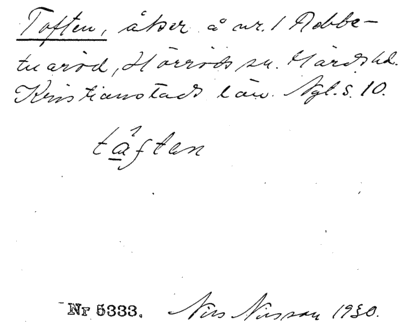 Toften, åker å nr. 1 Robbe-
tuaröd, Hörröds sn. Gärds hd.
Kristianstads län. Ngl. s. 10.
tåften
Nr 5333. Nils Nilsson 1930.